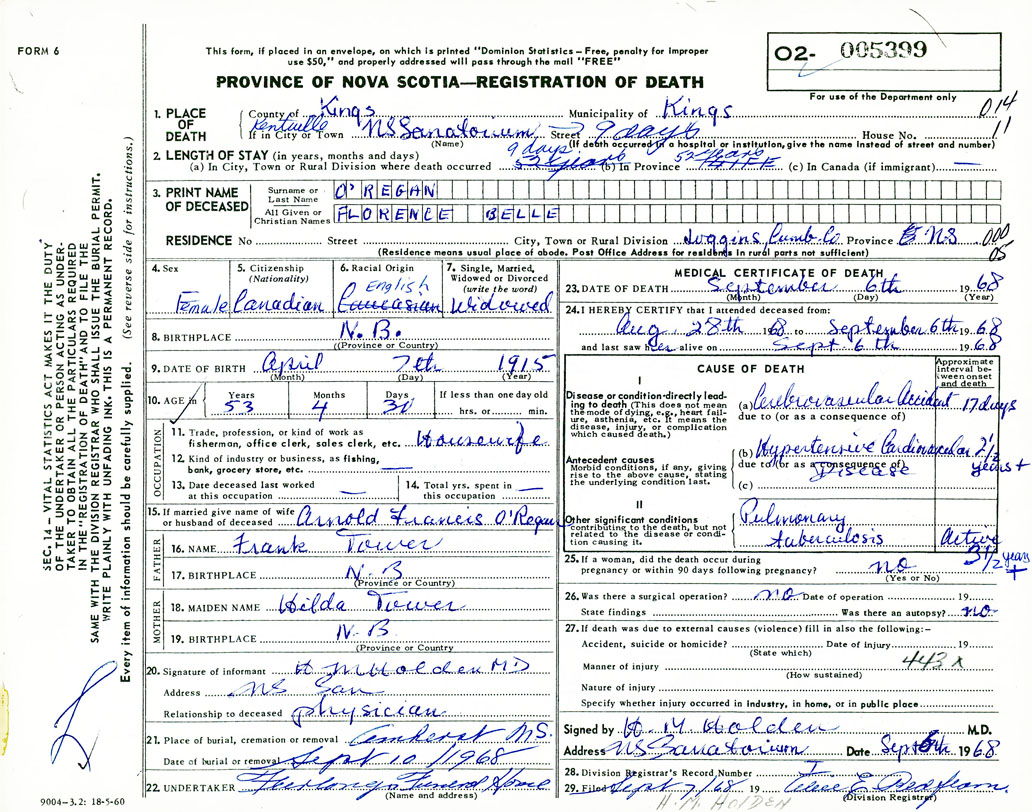 FORM 6
This form, if placed in an envelope, on which is printed "Dominion Statistics – Free, penalty for improper
use $50," and properly addressed will pass through the mail "FREE"
PROVINCE OF NOVA SCOTIA—REGISTRATION OF DEATH
O2- 005399
For use of the Department only
014
11
SEC. 14 – VITAL STATISTICS ACT MAKES IT THE DUTY
OF THE UNDERTAKER OR PERSON ACTING AS UNDER-
TAKER TO OBTAIN ALL THE PARTICULARS REQUIRED
IN THE "REGISTRATION OF DEATH" AND TO FILE THE
SAME WITH THE DIVISION REGISTRAR WHO SHALL ISSUE THE BURIAL PERMIT.
WRITE PLAINLY WITH UNFADING INK. THIS IS A PERMANENT RECORD.
Every item of information should be carefully supplied. (See reverse side for instructions.)
1. PLACE OF DEATH
County of Kings Municipality of Kings
Kentville
If in City or Town NS Sanatorium Street 9 days House No.
(Name) (If death occurred in a hospital or institution, give the name instead of street and number)
2. LENGTH OF STAY (in years, months and days)
9 days
(a) In City, Town or Rural Division where death occurred 53 years (b) In Province 53 years LIFE (c) In Canada (if immigrant) —
3. PRINT NAME OF DECEASED
Surname or Last Name O'REGAN
All Given or Christian Names FLORENCE BELLE
RESIDENCE No Street City, Town or Rural Division Joggins, Cumb. Co. Province NS 000
05
(Residence means usual place of abode. Post Office Address for residents in rural parts not sufficient)
4. Sex Female
5. Citizenship (Nationality) Canadian
6. Racial Origin English Caucasian
7. Single, Married, Widowed or Divorced (write the word) Widowed
8. BIRTHPLACE N.B.
(Province or Country)
9. DATE OF BIRTH April 7th 1915
(Month) (Day) (Year)
10. AGE in Years 53 Months 4 Days 30 If less than one day old hrs. or min.
OCCUPATION
11. Trade, profession, or kind of work as
fisherman, office clerk, sales clerk, etc. Housewife
12. Kind of industry or business, as fishing,
bank, grocery store, etc. —
13. Date deceased last worked
at this occupation —
14. Total yrs. spent in
this occupation —
15. If married give name of wife
or husband of deceased Arnold Francis O'Regan
FATHER
16. NAME Frank Tower
17. BIRTHPLACE N.B
(Province or Country)
MOTHER
18. MAIDEN NAME Hilda Tower
19. BIRTHPLACE N.B.
(Province or Country
20. Signature of informant H M Holden M D
Address NS San
Relationship to deceased physician
21. Place of burial, cremation or removal Amherst N.S.
Date of burial or removal Sept 10 / 1968
22. UNDERTAKER Furlong Funeral Home
(Name and address)
9004–3.2: 18-5-60
MEDICAL CERTIFICATE OF DEATH
23. DATE OF DEATH September 6th 1968
(Month) (Day) (Year)
24. I HEREBY CERTIFY that I attended deceased from:
Aug 28th 1968 to September 6th 1968
and last saw her alive on Sept 6th 1968
CAUSE OF DEATH
Approximate interval between onset and death
I
Disease or condition directly lead-
ing to death (This does not mean
the mode of dying, e.g., heart fail-
ure, asthenia, etc. It means the
disease, injury, or complication
which caused death.)
(a) Cerebrovascular Accident 17 days
due to (or as a consequence of)
Antecedent causes
Morbid conditions, if any, giving
rise to the above cause, stating
the underlying condition last.
(b) Hypertensive Cardiovascular 2½
due to (or as a consequence of) Disease years +
(c)
II
Other significant conditions
contributing to the death, but not
related to the disease or condi-
tion causing it.
Pulmonary
tuberculosis Active
3½ years +
25. If a woman, did the death occur during
pregnancy or within 90 days following pregnancy? no
(Yes or No)
26. Was there a surgical operation? no Date of operation 19
State findings Was there an autopsy? no
27. If death was due to external causes (violence) fill in also the following:–
Accident, suicide or homicide? Date of injury 19
(State which)
Manner of injury 443 x
(How sustained)
Nature of injury
Specify whether injury occurred in Industry, in home, or in public place
Signed by H. M. Holden M.D.
Address NS Sanatorium Date Sept 6th 1968
28. Division Registrar's Record Number
29. Filed Sept 7/68 19
(Division Registrar)
H. M. HOLDEN